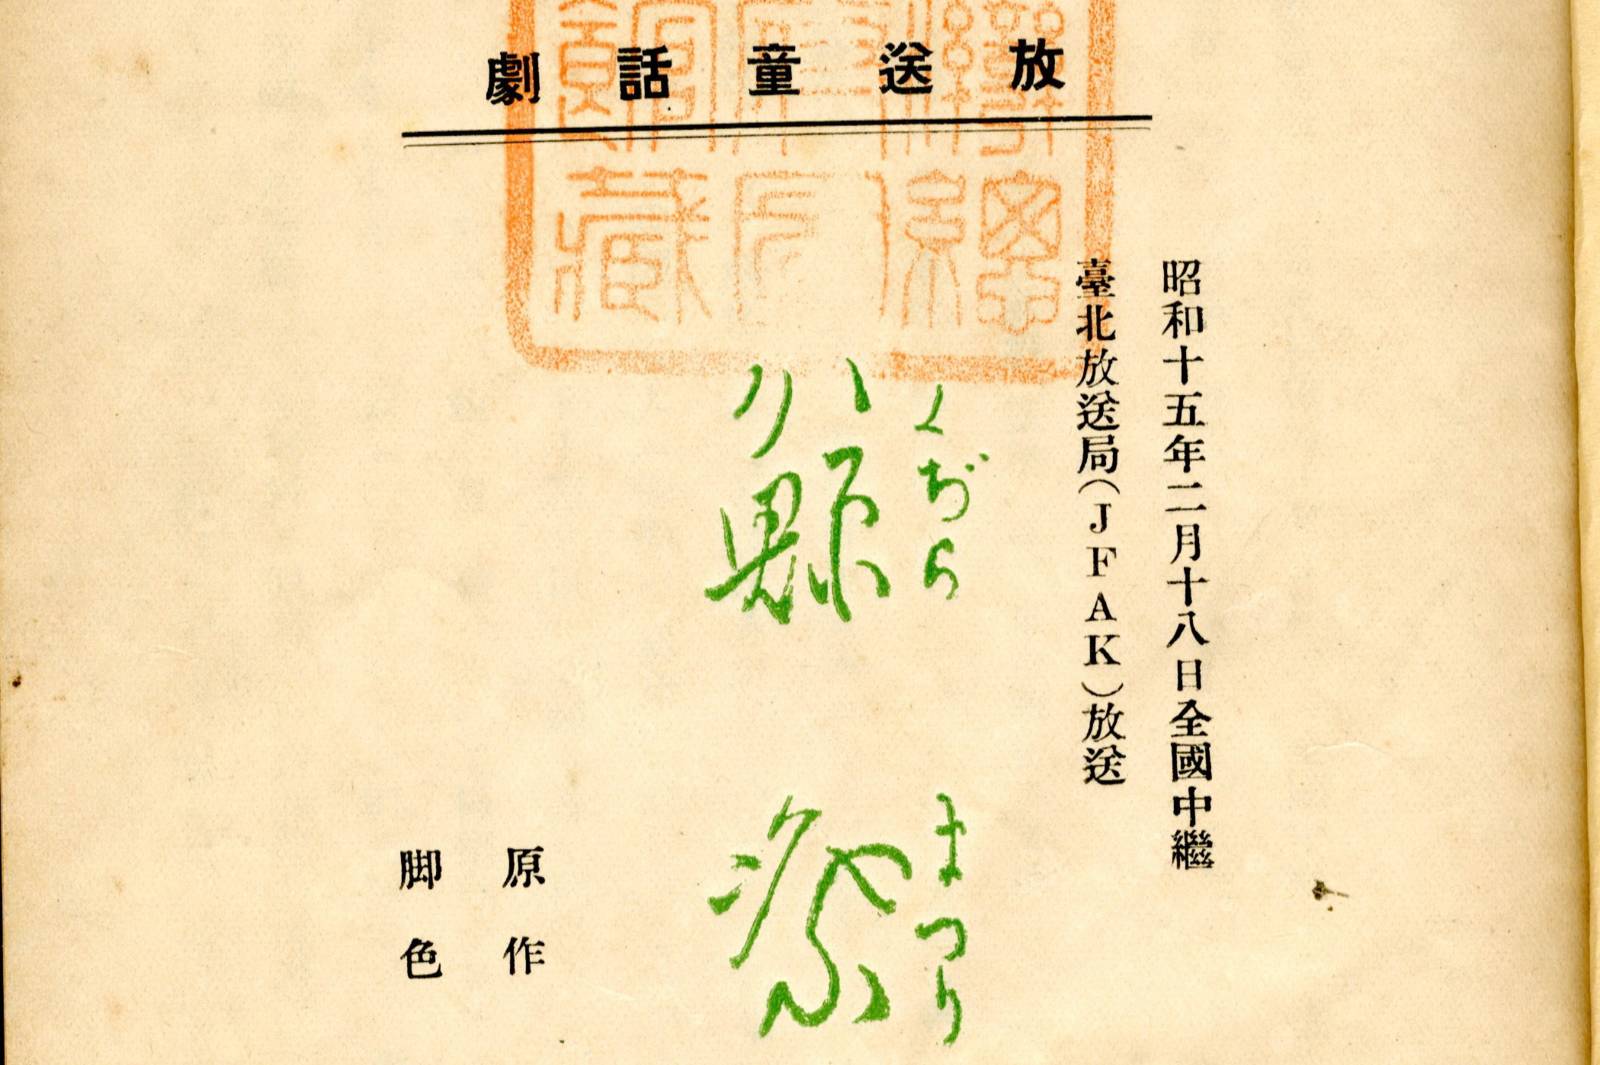 放送童話劇
昭和十五年二月十八日全國中繼
臺北放送局(JFAK)放送
くぢら
まつり
祭
原作
脚色